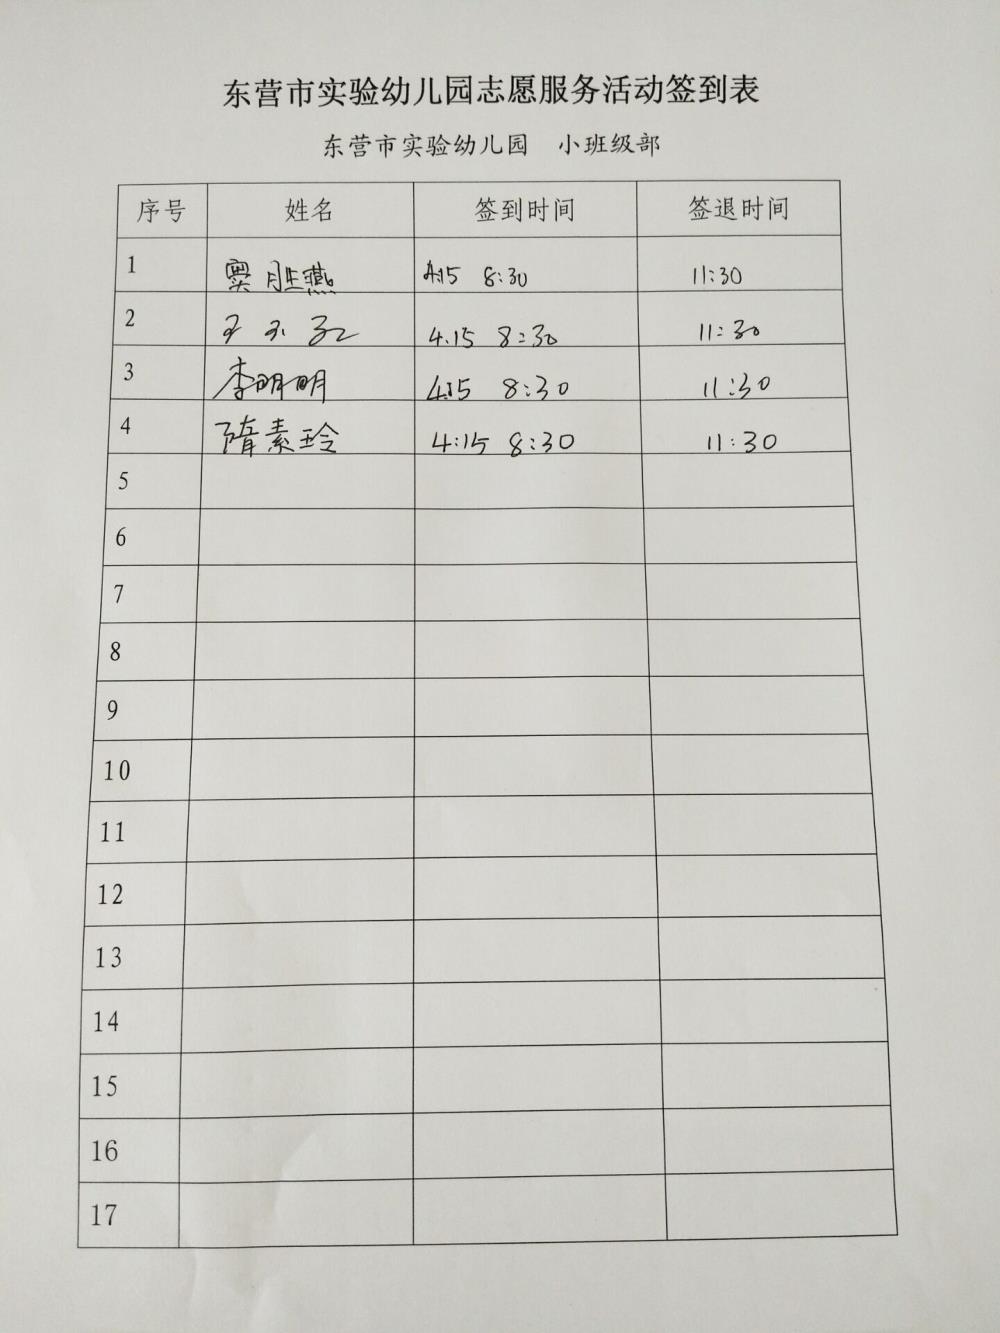 东营市实验幼儿园志愿服务活动签到表
东营市实验幼儿园 小班级部
序号 姓名 签到时间 签退时间
1 窦胜燕 4.15 8:30 11:30
2 4.15 8:30 11:30
3 李明明 4.15 8:30 11:30
4 隋素玲 4:15 8:30 11:30
5
6
7
8
9
10
11
12
13
14
15
16
17